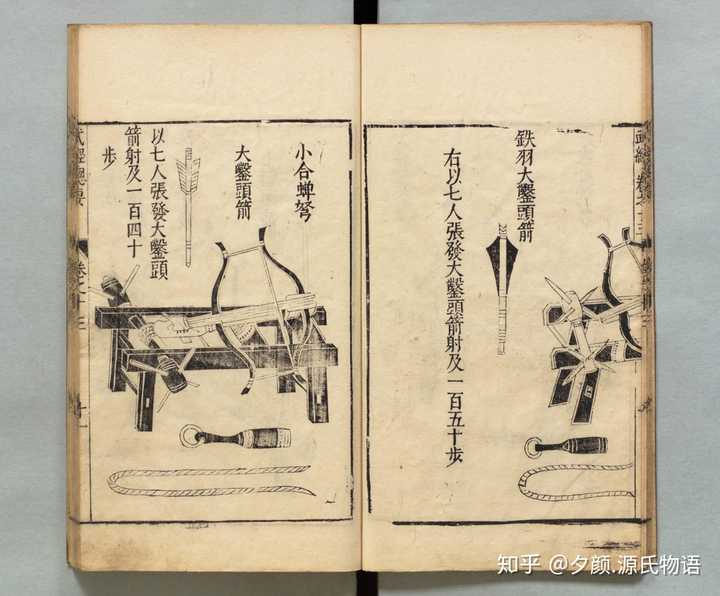 鉄羽大鑿頭箭
右以七人張發大鑿頭箭射及一百五十步
小合蟬弩
大鑿頭箭
以七人張發大鑿頭
箭射及一百四十
步
武經總要
卷之十三
知乎 @夕颜.源氏物语